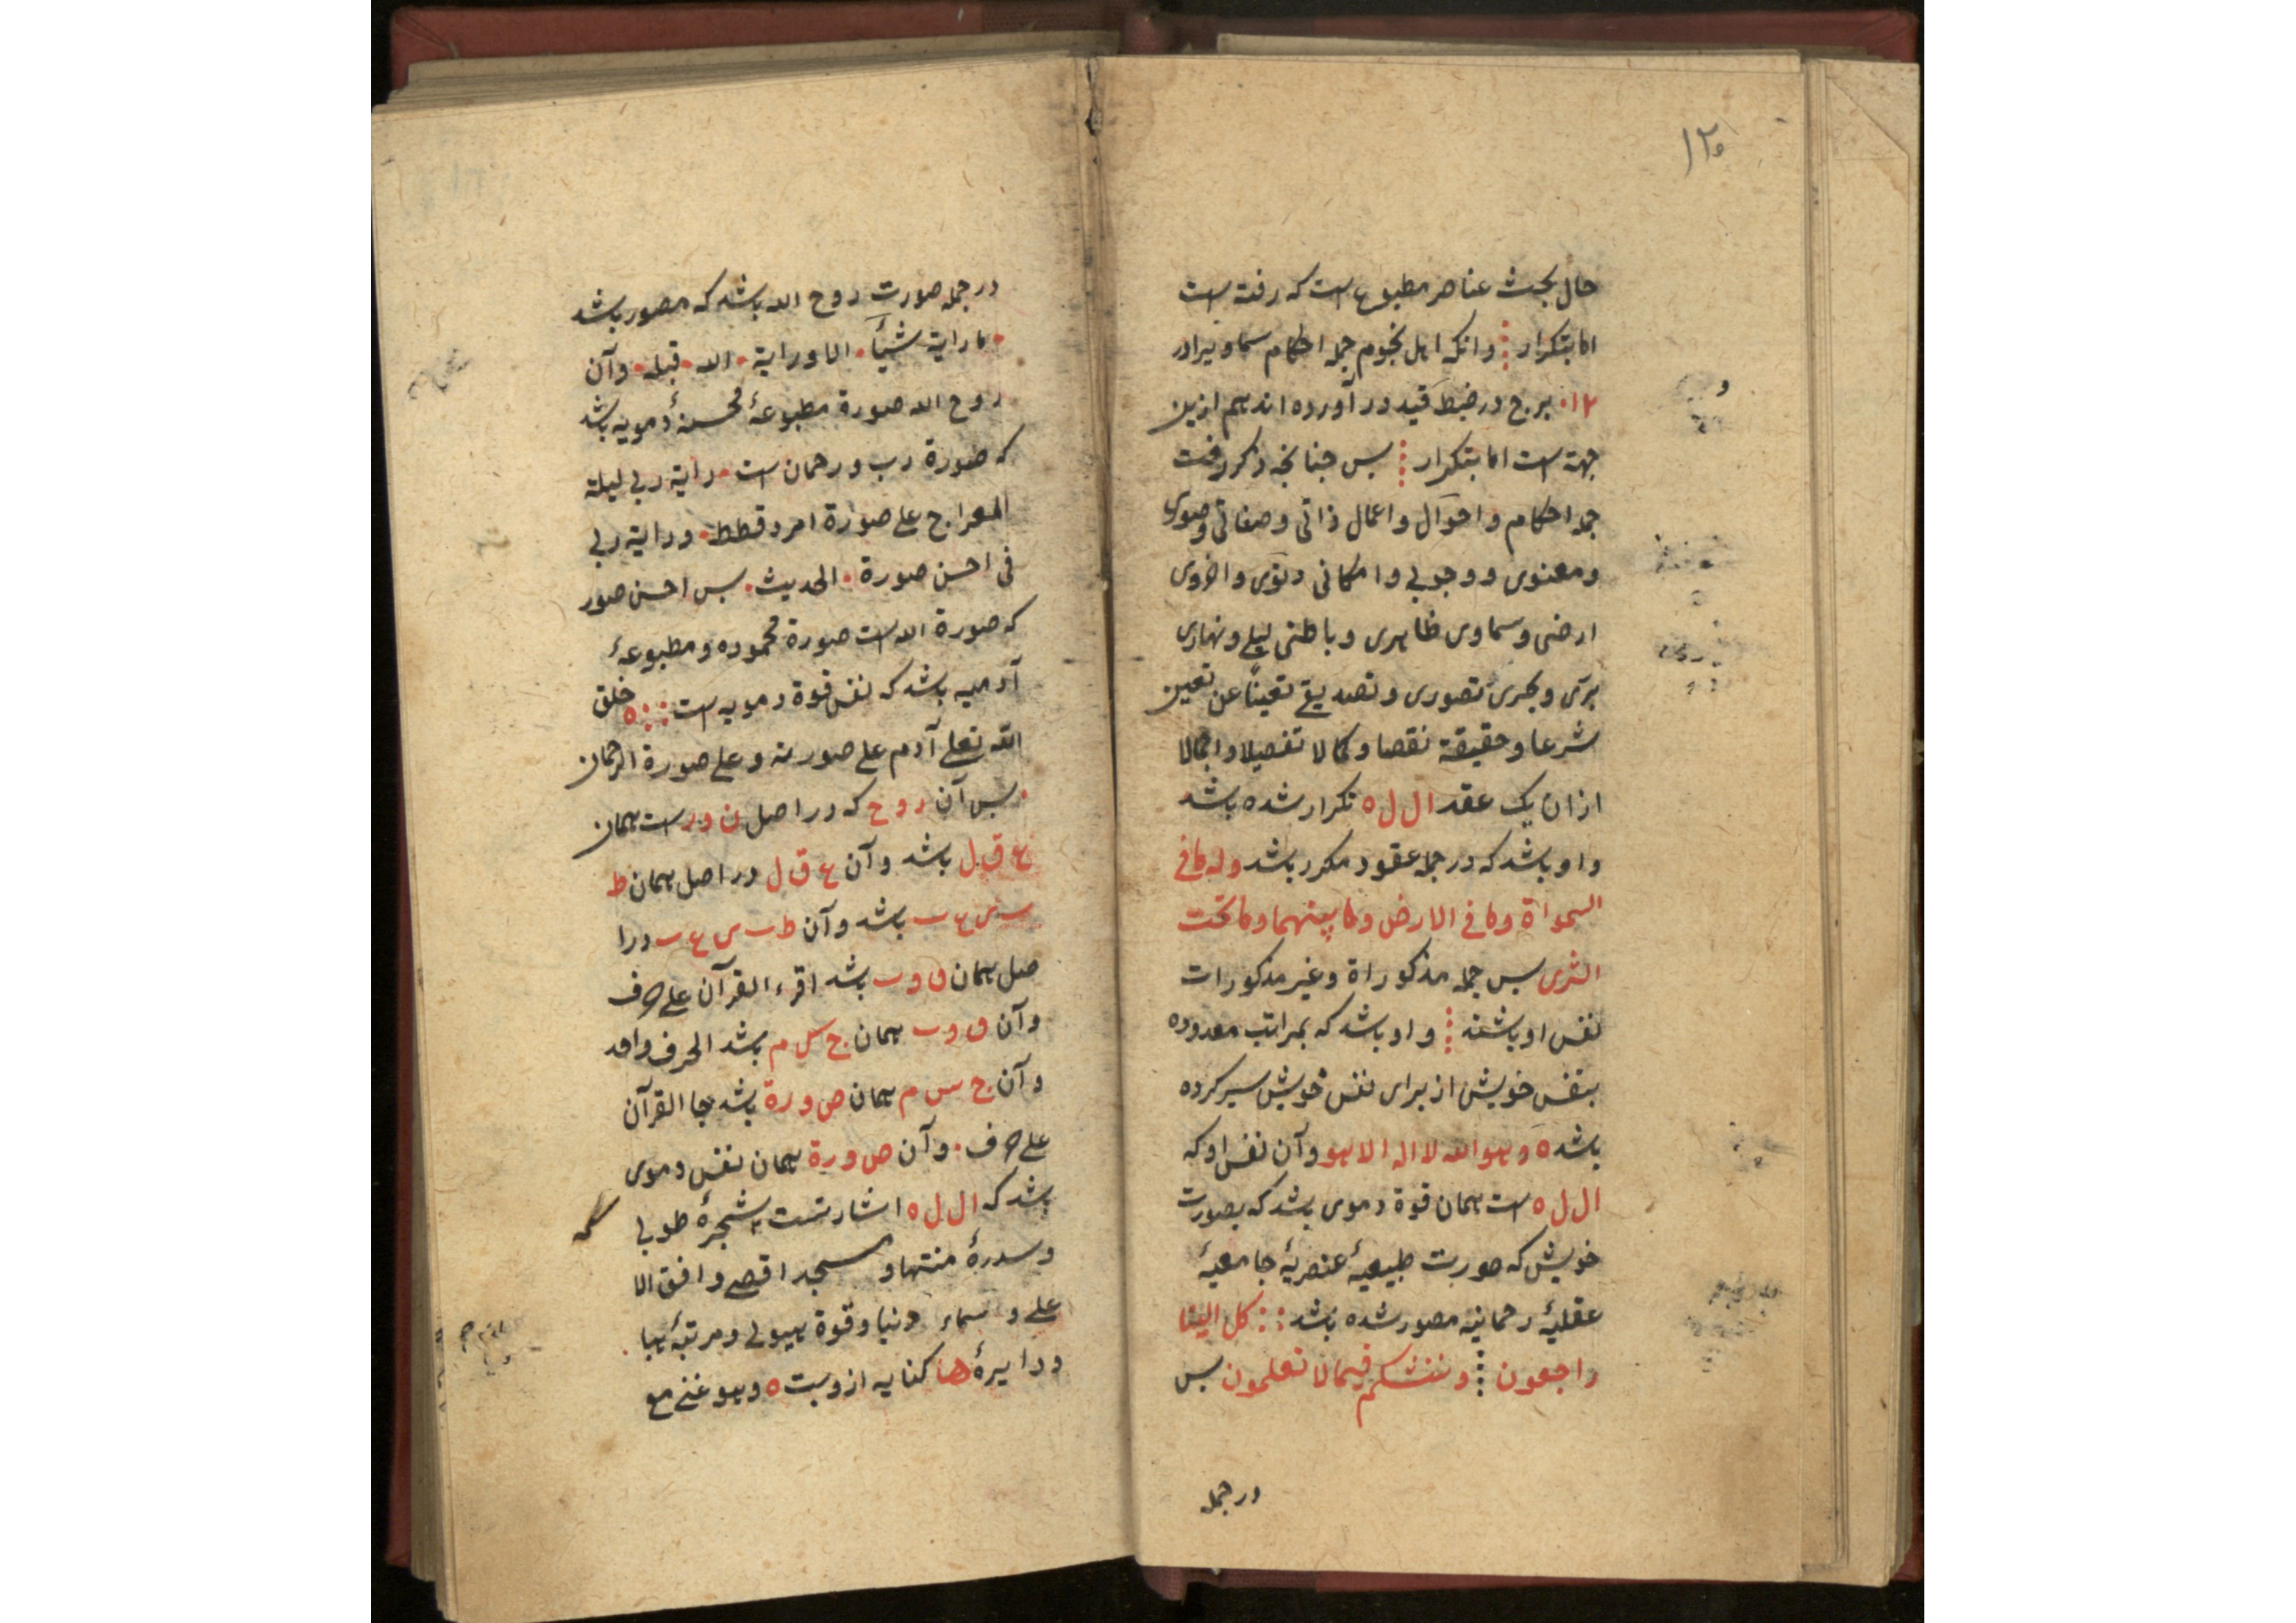 ١٢٥
حال بحث عناصر مطبوع است که رفته است
اما بتکرار ⁝ وانکه اهل نجوم جمله احکام سماویرا در
١٢٠ برج در ضبط قید در آورده اند هم ازین
جهة است اما بتکرار ⁝ بس جنانجه ذکر رفت
جمله احکام و احوال و اعمال ذاتی و صفاتی و صوری
و معنوی و وجوبی و امکانی دنوی و اخروی
ارضی و سماوی ظاهری و باطنی لیلی و نهاری
بری و بحری تصوری و تصدیقی تعیناً عن تعین
شرعا و حقیقة نقصا و کمالا تفصیلا و اجمالا
ازان یک عقد ال ل ه تکرار شده باشد
و او باشد که در جمله عقود مکرر باشد وله ما فی
السمواة وما فی الارض وما بینهما وما تحت
الثری بس جمله مذکوراة و غیر مذکورات
نفس او باشند ⁝ و او باشد که بمراتب معدوده
بنفس خویش از برای نفس خویش سیر کرده
باشد ه وهو الله لا اله الا هو و آن نفس او که
ال ل ه است همان قوة دموی باشد که بصورت
خویش که صورت طبیعیهٔ عنصریهٔ جامعیهٔ
عقلیهٔ رحمانیه مصور شده باشد :: کل الینا
راجعون ⁝ وننشئکم فیما لا تعلمون بس
در جمله
در جمله صورت روح الله باشد که مصور باشد
ما رایة شیأ · الا ورایة · الله · قبله · وآن
روح الله صورة مطبوعهٔ محسنهٔ دمویه باشد
که صورة رب و رحمان است · رایة ربی لیلة
المعراج علی صورة امرد قطط · ورایة ربی
فی احسن صورة · الحدیث · بس احسن صور
که صورة الله است صورة محموده و مطبوعهٔ
آدمیه باشد که نفس قوة دمویه است :: ه خلق
الله تعلی آدم علی صورته و علی صورة الرحمان
· بس آن روح که در اصل ن ور است همان
ع ق ل باشد وآن ع ق ل در اصل همان ط
ب ی ع ب باشد وآن ط ب ی ع ب درا
صل همان ق و ب باشد اقرء القرآن علی حرف
وآن ق و ب همان ج س م باشد الحرف واحد
وآن ج س م همان ص و رة باشد جا القرآن
علی حرف · وآن ص و رة همان نفس دموی
باشد که ال ل ه اشارتست بشجرهٔ طوبی
و سدرهٔ منتها و مسجد اقصی و افق الا
علی و سماء دنیا و قوة هیولی و مرتبهٔ هبا
و دایرهٔ ها کنایه ازوست ه وهو غنی مع